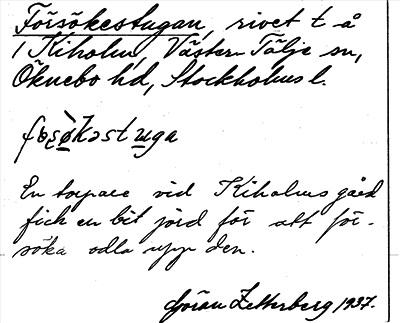 Försökestugan, rivet t å
i Kiholm, Väster Tälje sn,
Öknebo hd, Stockholms l.
En torpare vid Kiholms gård
fick en bit jord för att för-
söka odla upp den.
Göran Zetterberg 1937.